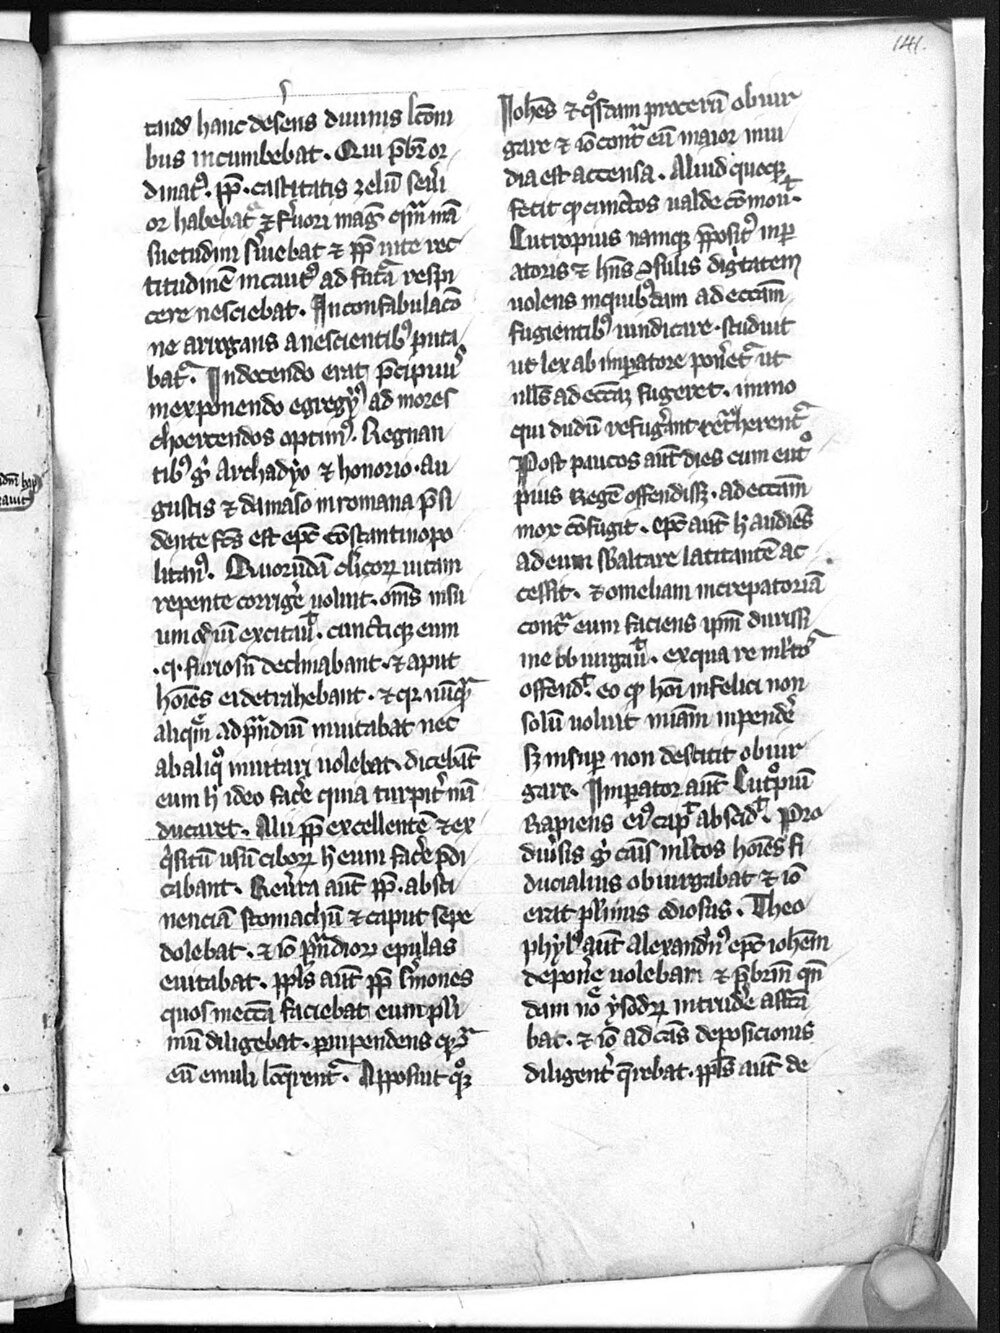 141.
tand' hanc deserens diuinis lc̄oni
bus incumbebat. Qui p̄br̄ or
dinatꝰ. ꝓp̄. castitatis zelū seu̓i
or habebat᷑ ⁊ fr̓uori mag̓ qm̄ mā
suetudini s̓uiebat ⁊ ꝓp̄ uite rec
titudinē incautꝰ ad fut᷑a respi
cere nesciebat. In confabulacō
ne arrogans a nescientibꝰ puta
bat᷑. In docendo erat p̄cipuus
in exponendo egregiꝰ ad mores
choercendos optimꝰ. Regnan
tibꝰ g̓ Archadyo ⁊ honorio au
gustis ⁊ damaso in romana p̄si
dente fc̄s est ep̄c cōstantinopo
litanꝰ. Quorūdā cl̓icoꝝ uitam
repente corrig̓e uoluit. om̄s in su
um odiū excitauit. cunctiqꝫ eum
.q. furiosū declinabant. ⁊ aput
hoīes ei detrahebant. ⁊ qꝛ nūqᷓ
aliqm̄ ad pᷓndiū inuitabat nec
ab aliqͦ inuitari uolebat. dicebāt
eum h̓ ideo fac̓e quia turpit̓ mā
ducaret. Alii ꝓp̄ excellentē ⁊ ex
q̓sitū usū ciboꝝ h̓ eum fac̓e p̄di
cabant. Reu̓ra aut̄ ꝓp̄. absti
nenciā stomachū ⁊ caput sepe
dolebat. ⁊ iō pᷓndioꝝ epulas
euitabat. ppl̄s aut̄ ꝓp̄ s̓mones
quos in ecc̄a faciebat eum plri
mū diligebat. paruipendens qͥcqͥd
eū emuli loq̄rent᷑. Apposuit qͦqꝫ
Ioh̄es ⁊ qͦsdam procerū obiur
gare ⁊ iō contᷓ eū maior inui
dia est accensa. Aliud quoqꝫ
fecit qͩ cunctos ualde cōmouit.
Eutropius namqꝫ p̄positꝰ imꝑ
atoris ⁊ hn̄s ꝯsulis dig̓tatem
uolens in quibꝰdam ad ecc̄am
fugientibꝰ uindicare. studuit
ut lex ab imꝑatore pon̓et᷑ ut
nll̄s ad ecc̄aꝫ fugeret. immo
qui dudū refug̓ant ret᷑herent᷑
Post paucos aut̄ dies cum eutͦ
pius regē offendissꝫ. ad ecc̄am
mox cōfugit. ep̄c aut̄ h̓ audiēs
ad eum sb altare latitantē ac
cessit. ⁊ omeliam increpatoriā
contᷓ eum faciens ip̄m durissi
me obiurgauit. ex qua re ml̓tos
offendit. eo qͩ hoī infelici non
solū uoluit miām inpend̓e
sꝫ insuꝑ non destitit obiur
gare. Imꝑator aut̄ Eutͦpiū
rapiens eiꝰ capᵗ abscidᵗ. Pro
diu̓sis g̓ cāis ml̓tos hoīes fi
ducialius obiurgabat ⁊ iō
erat pl̓imis odiosus. Theo
phylꝰ aut̄ Alexandrinꝰ ep̄c ioh̄em
depon̓e uolebat ⁊ p̄brm̄ qn̄
dam noīe ysodoꝝ intrud̓e affc̄a
bat. ⁊ iō ad cās deposicionis
diligent̓ q̄rebat. ppl̄s aut̄ de